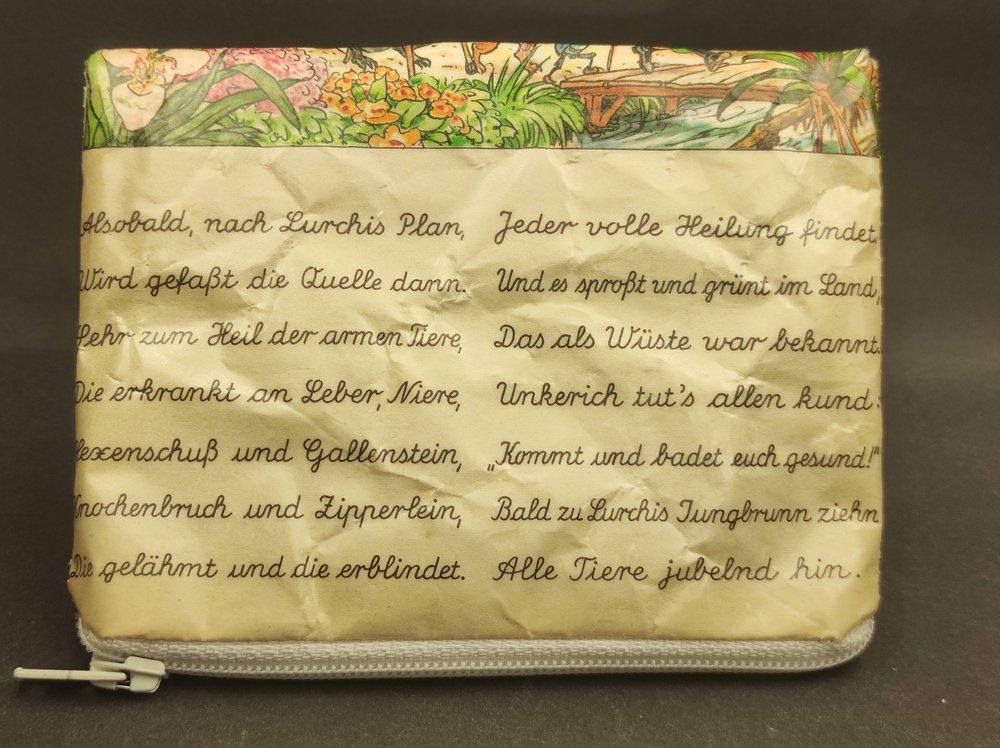 Alsobald, nach Lurchis Plan,
Wird gefaßt die Quelle dann.
Sehr zum Heil der armen Tiere,
Die erkrankt an Leber, Niere,
Hexenschuß und Gallenstein,
Knochenbruch und Zipperlein,
Die gelähmt und die erblindet.
Jeder volle Heilung findet.
Und es sproßt und grünt im Land,
Das als Wüste war bekannt.
Unkerich tut's allen kund:
„Kommt und badet euch gesund!"
Bald zu Lurchis Jungbrunn ziehn
Alle Tiere jubelnd hin.